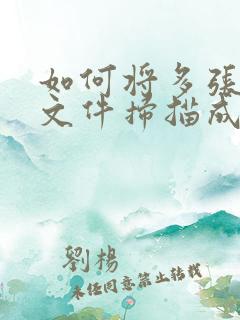 如何将多張
文件掃描成
劉楊
未经同意禁止转载